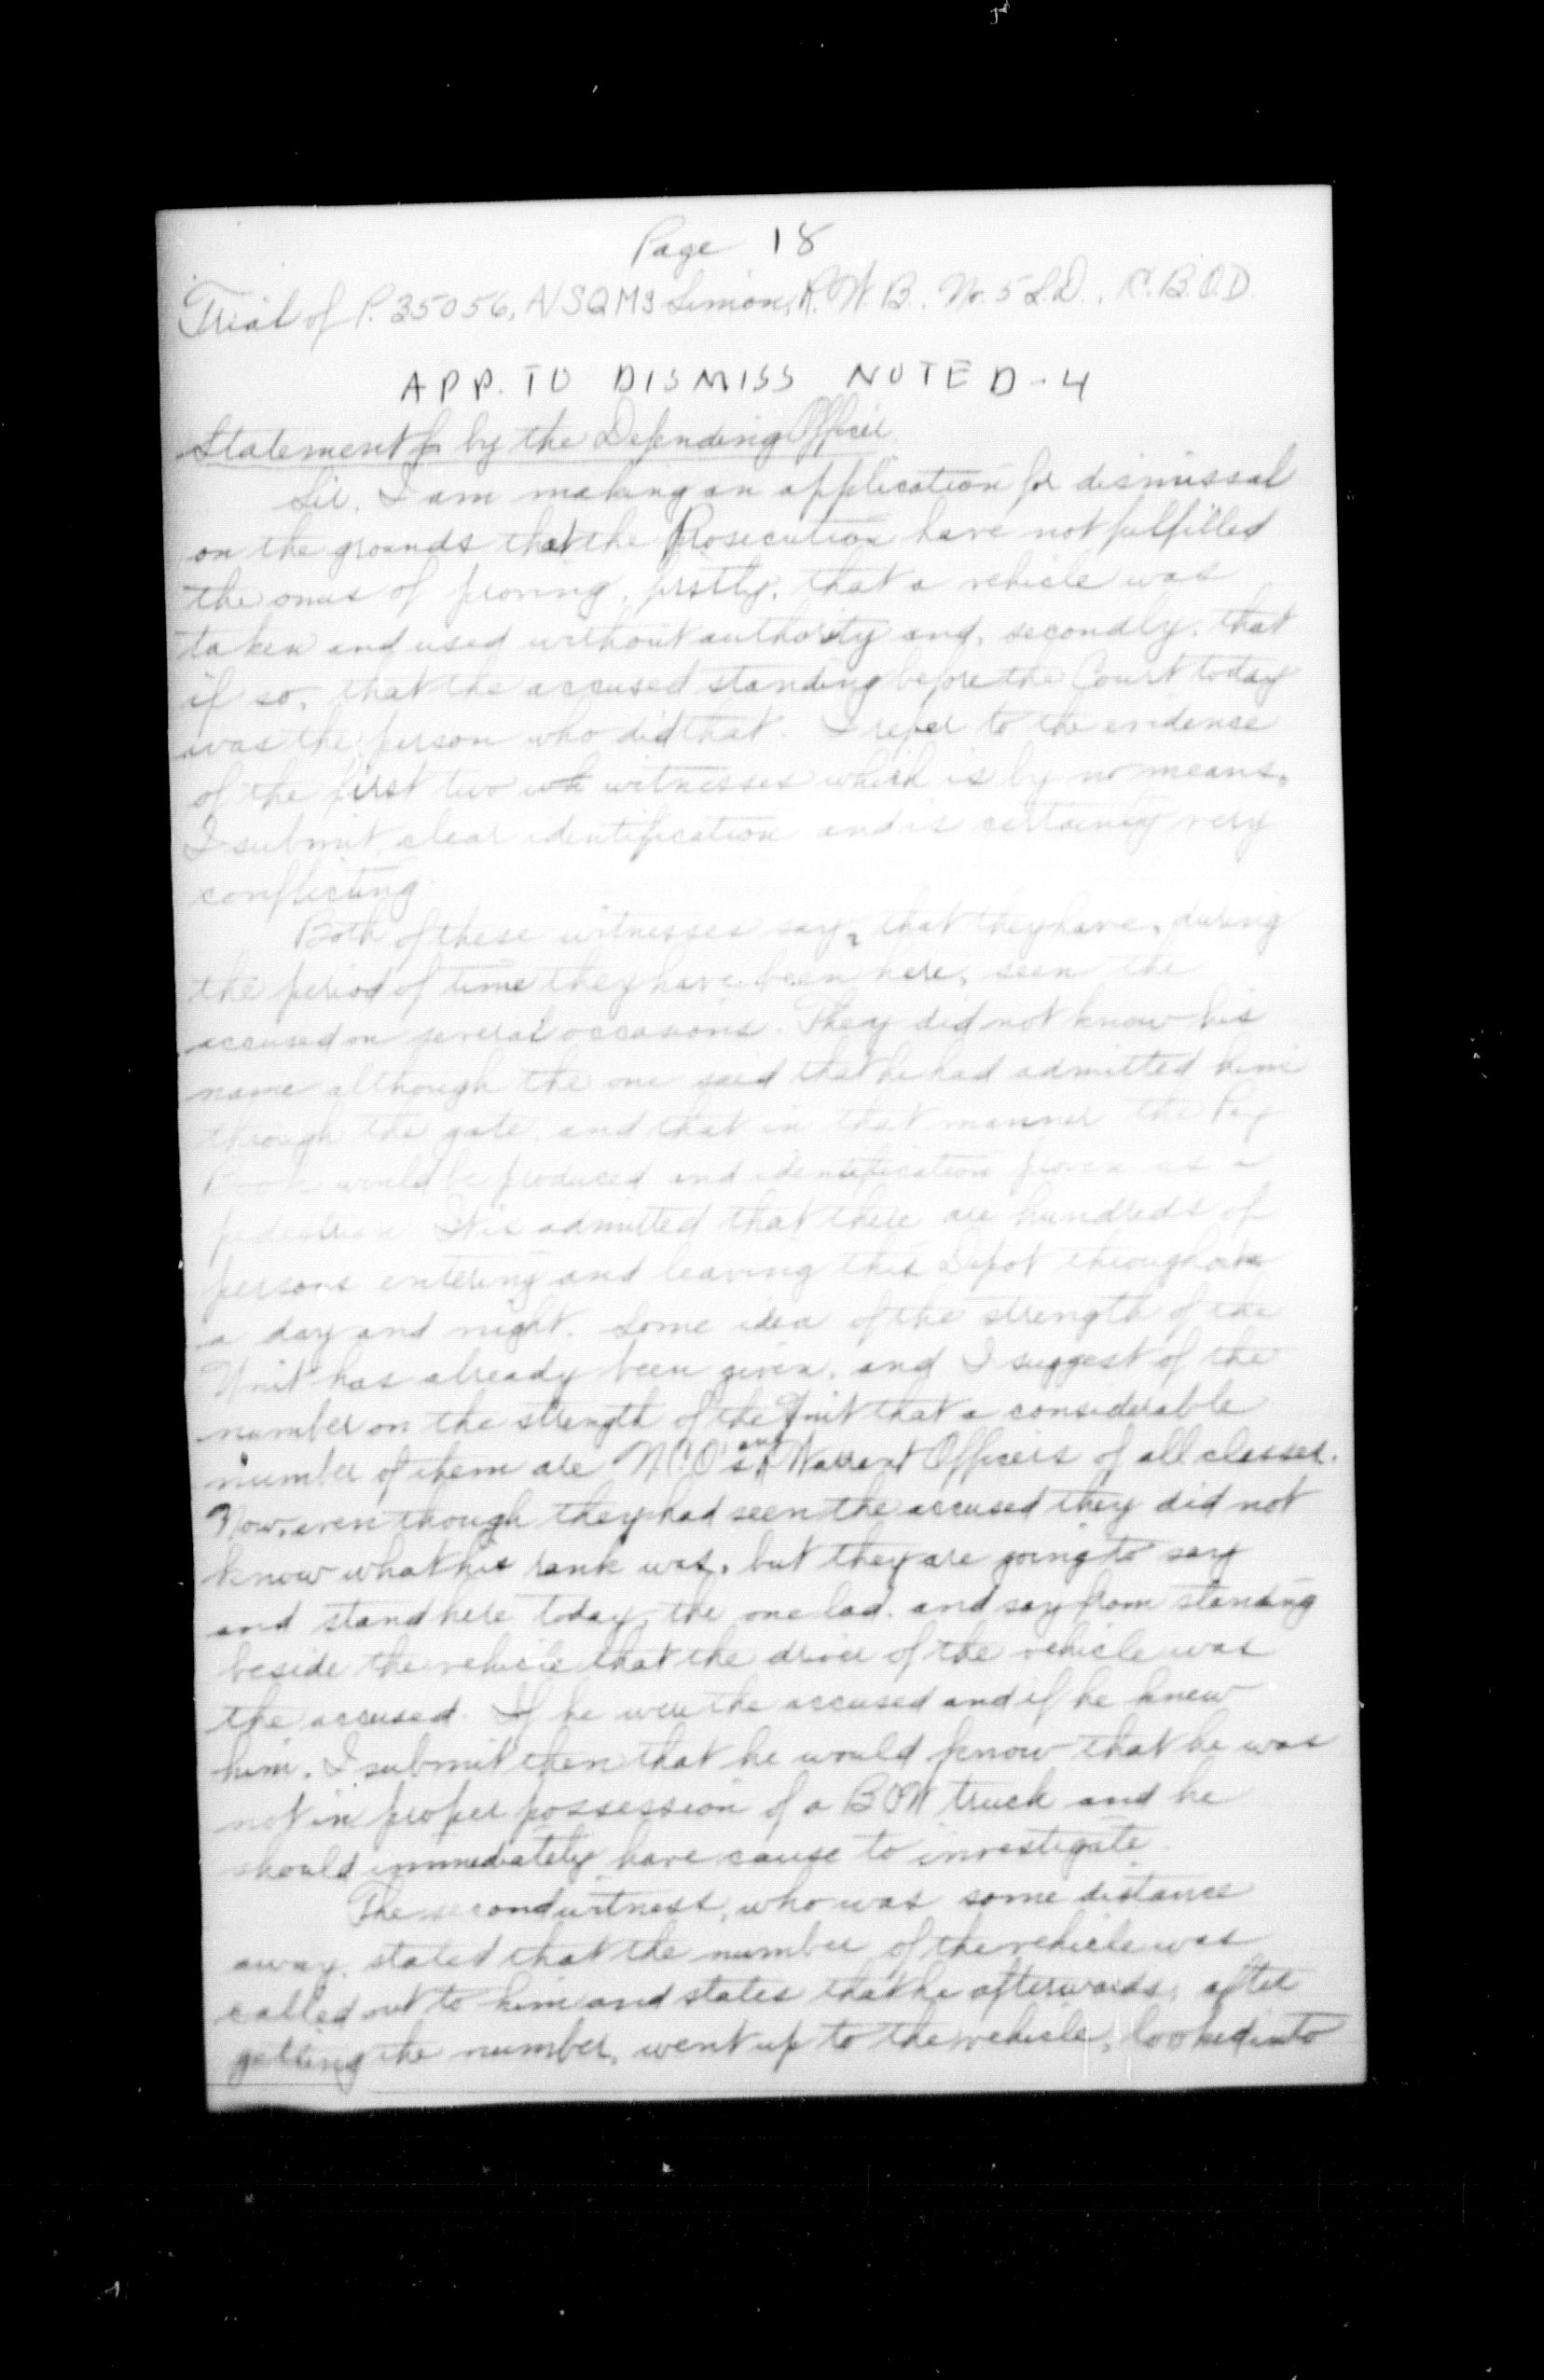 Page 18
Trial of P.35056, A/SQMS Simon, R. W. B. No. 5 S.D., C.B.O.D.
APP. TO DISMISS NOTED - 4
Statement by the Defending Officer
Sir, I am making an application for dismissal
on the grounds that the Prosecution have not fulfilled
the onus of proving, firstly, that a vehicle was
taken and used without authority and, secondly, that
if so, that the accused standing before the Court today
was the person who did that. I refer to the evidence
of the first two witnesses which is by no means,
I submit, clear identification and is certainly very
conflicting.
Both of these witnesses say, that they have, during
the period of time they have been here, seen the
accused on several occasions. They did not know his
name although the one said that he had admitted him
through the gate, and that in that manner the Pay
Book would be produced and identification proven as a
pedestrian. It is admitted that there are hundreds of
persons entering and leaving this Depot throughout
a day and night. Some idea of the strength of the
Unit has already been given, and I suggest of the
number on the strength of the Unit that a considerable
number of them are N.C.O's and Warrant Officers of all classes.
Now, even though they had seen the accused they did not
know what his rank was, but they are going to say
and stand here today, the one lad, and say from standing
beside the vehicle that the driver of the vehicle was
the accused. If he were the accused and if he knew
him, I submit then that he would know that he was
not in proper possession of a BOW truck and he
should immediately have cause to investigate.
The second witness, who was some distance
away, stated that the number of the vehicle was
called out to him and states that he afterwards, after
getting the number, went up to the vehicle, looked into